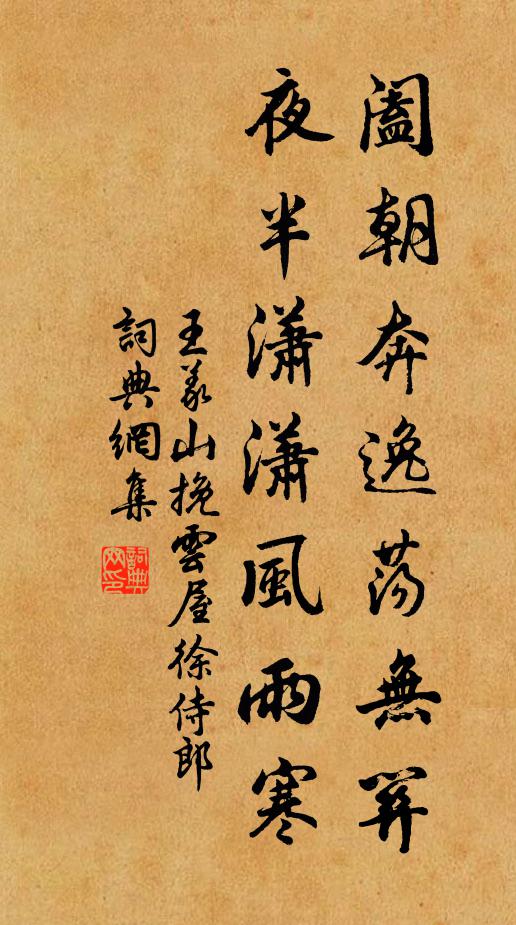 闔朝奔逸蕩無
夜半瀟瀟風雨寒
王義山挽雲屋徐侍郎
詞典網集
詞典
网印